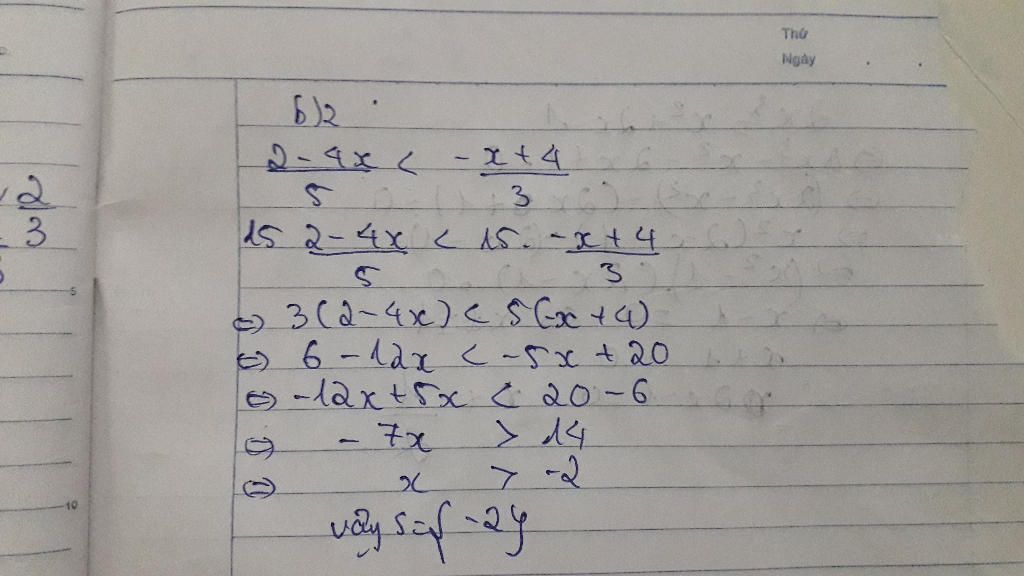 Thứ
Ngày
b)2
2 - 4x / 5 < - x + 4 / 3
2
3
15 2 - 4x / 5 < 15. - x + 4 / 3
5
⇔ 3(2 - 4x) < 5(-x + 4)
⇔ 6 - 12x < -5x + 20
⇔ -12x + 5x < 20 - 6
⇔ - 7x > 14
⇔ x > -2
10
vậy S = { -2 }